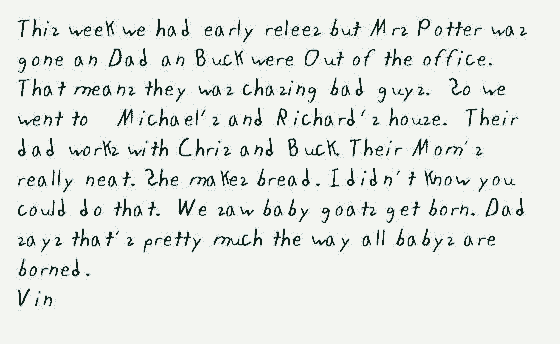 This week we had early relees but Mrs Potter was
gone an Dad an Buck were Out of the office.
That means they was chasing bad guys. So we
went to Michael's and Richard's house. Their
dad works with Chris and Buck. Their Mom's
really neat. She makes bread. I didn't know you
could do that. We saw baby goats get born. Dad
says that's pretty much the way all babys are
borned.
Vin